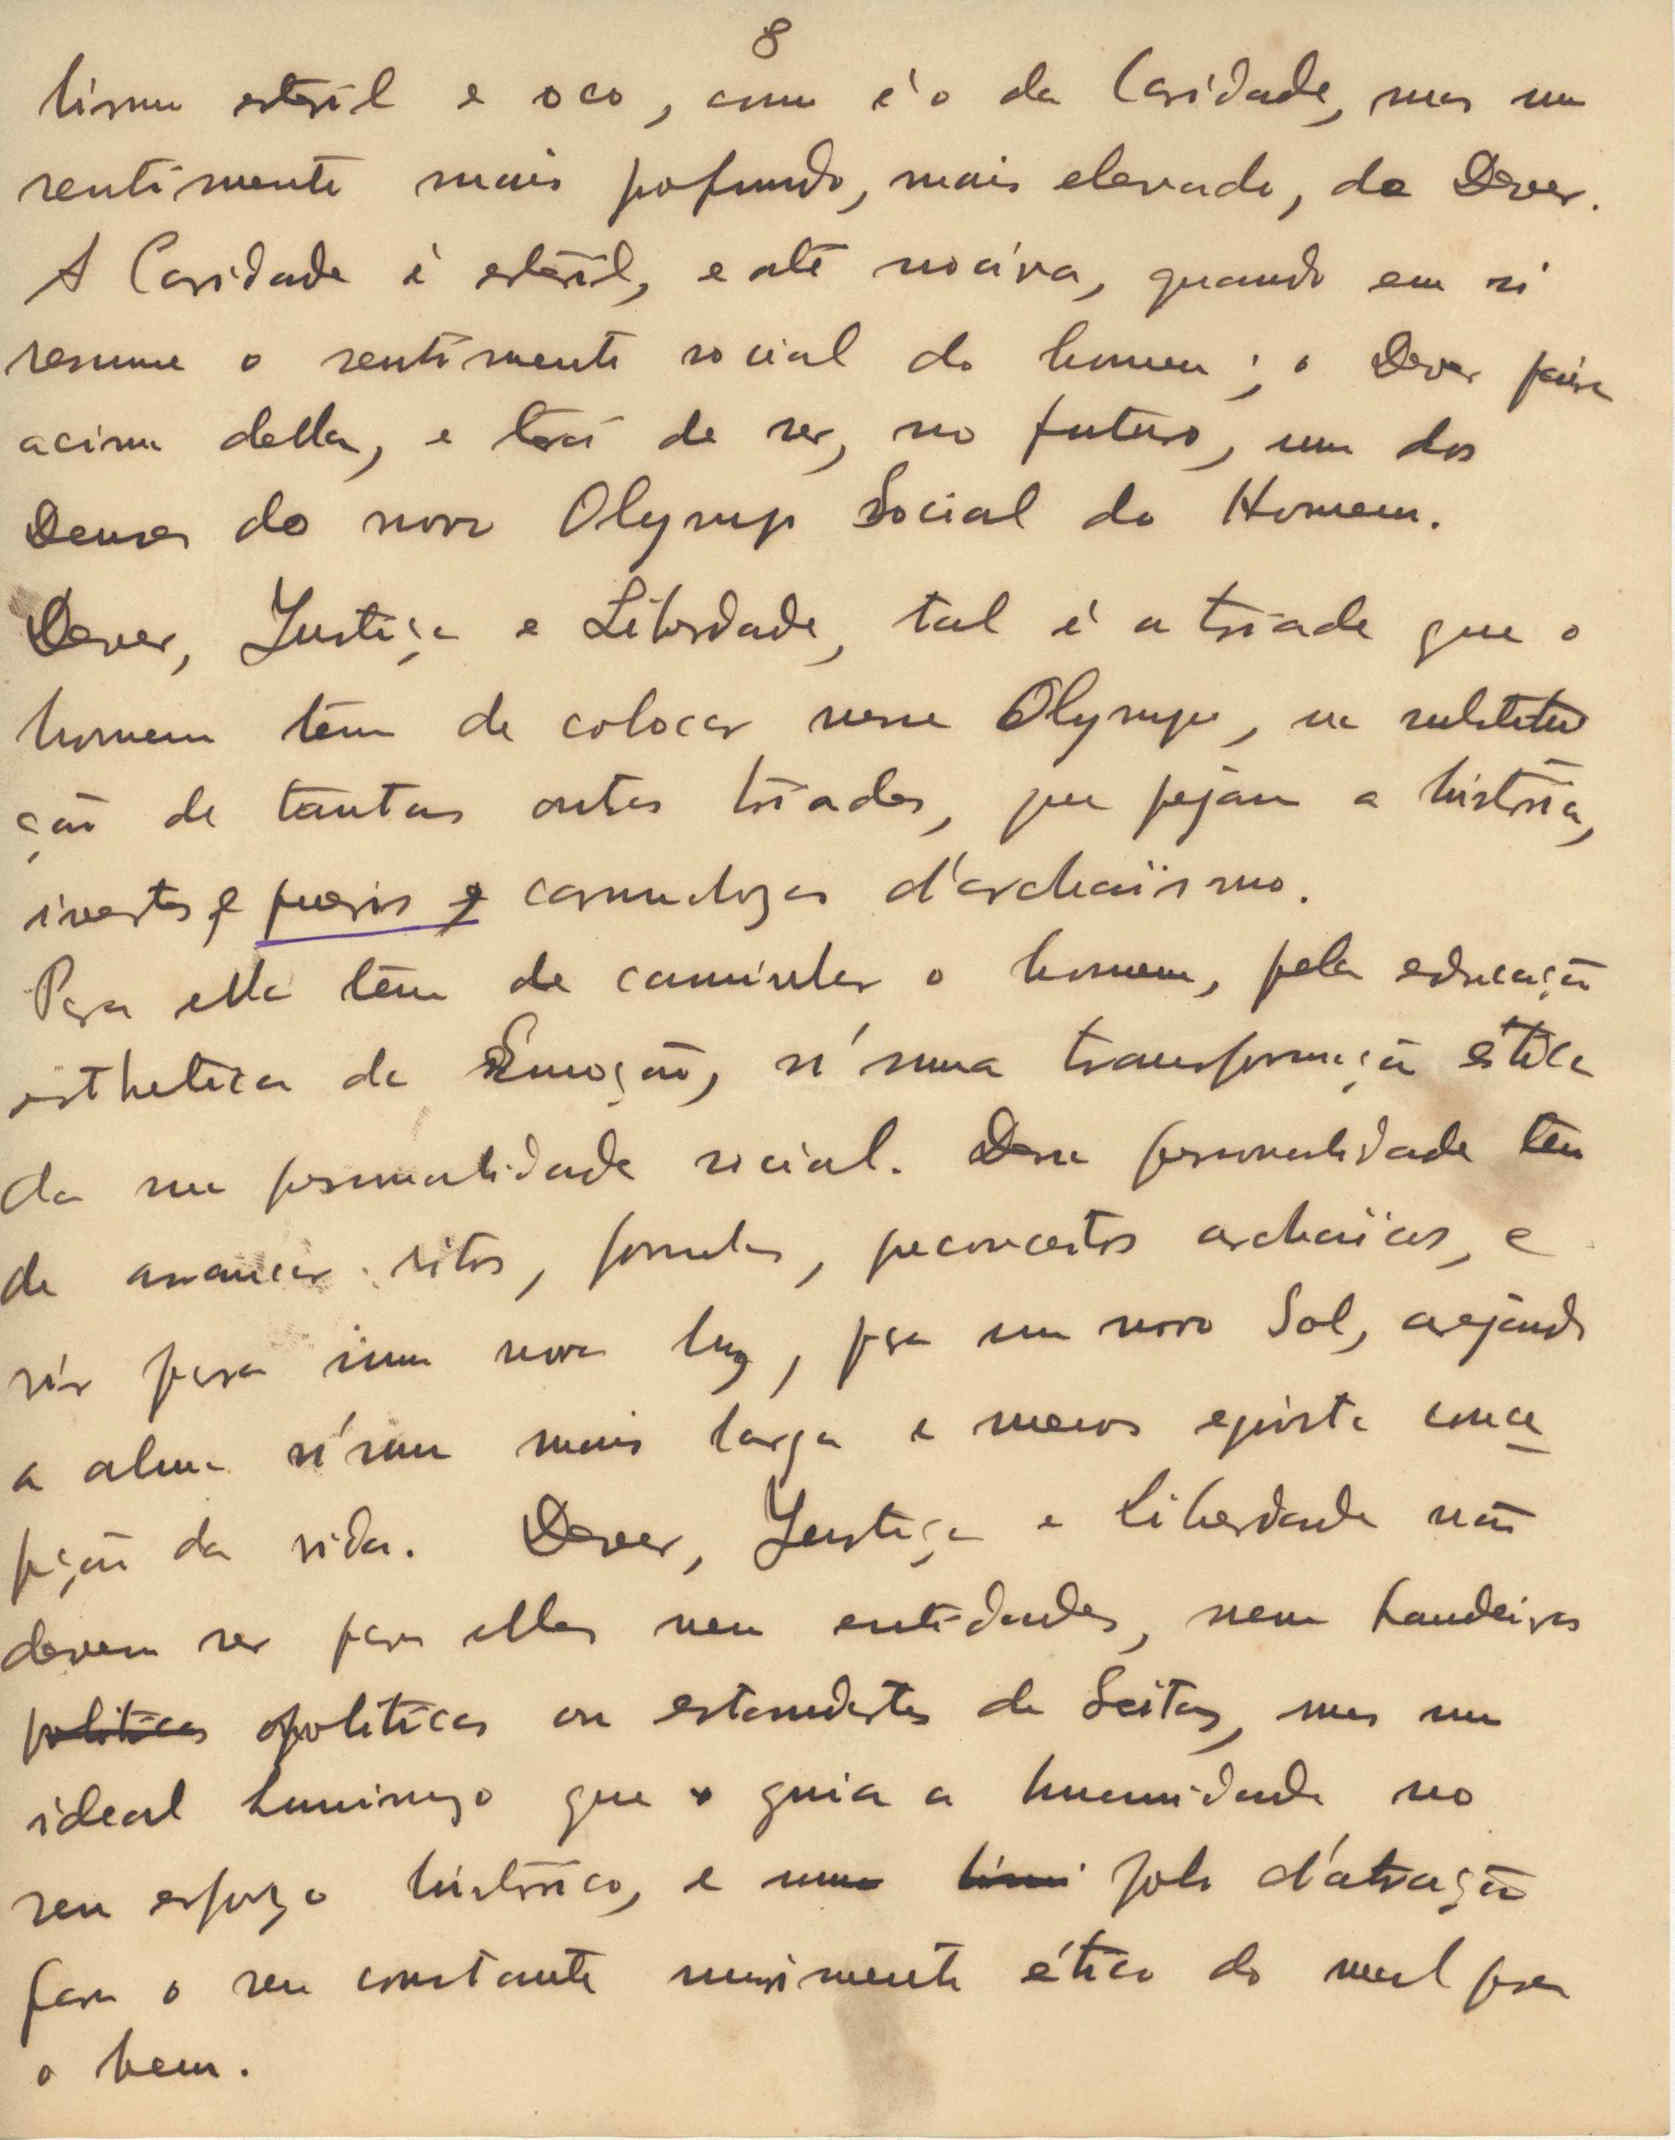 8
lismo esteril e oco, como é o da Caridade, mas um
sentimento mais profundo, mais elevado, do Dever.
A Caridade é esteril, e até nociva, quando em si
resume o sentimento social do homem; o Dever paira
acima della, e terá de ser, no futuro, um dos
Deuses do novo Olympo Social do Homem.
Dever, Justiça e Liberdade, tal é a triade que o
homem tem de colocar nesse Olympo, na substitui
ção de tantas outras triades, que pejam a história,
inertes e pueris e carunchozas d'archaïsmo.
Para ella tem de caminhar o homem, pela educação
esthetica da Emoção, n'uma transformação ética
da sua personalidade social. Dessa personalidade tem
de arrancar ritos, formulas, preconceitos archaïcos, e
vir para uma nova luz, para um novo Sol, arejando
a alma n'uma mais larga e menos egoista conce
pção da vida. Dever, Justiça e Liberdade não
devem ser para elle nem entidades, nem bandeiras
politicas politicas ou estandartes de Seitas, mas um
ideal luminozo que guia a humanidade no
seu esforço histórico, e um polo d'atração
para o seu constante movimento ético do mal para
o bem.